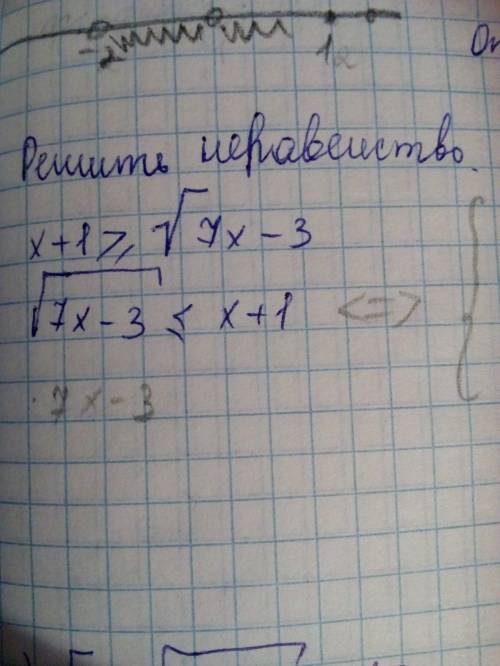 -2 1 2
От
Решить неравенство.
x+1 ≥ √7x-3
√7x-3 ≤ x+1 <=> {
7x-3